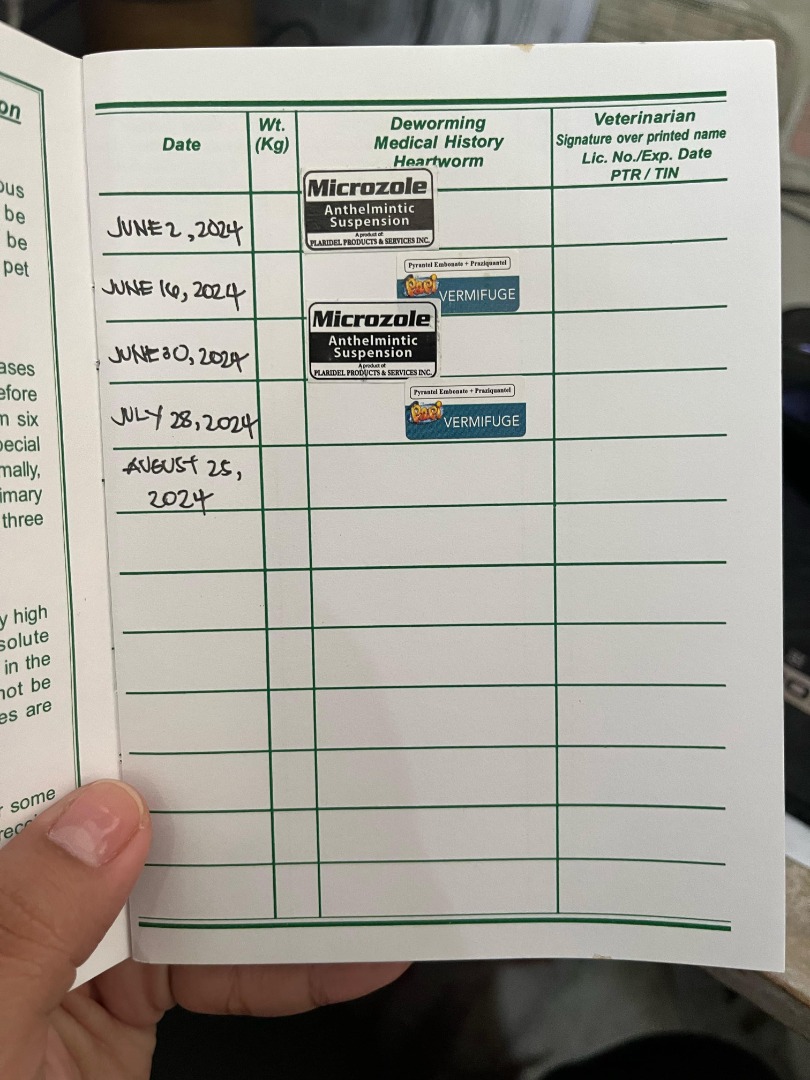 on
ous
be
be
pet
ases
efore
n six
pecial
mally,
imary
three
y high
solute
in the
not be
es are
r some
Date
Wt.
(Kg)
Deworming
Medical History
Heartworm
Veterinarian
Signature over printed name
Lic. No./Exp. Date
PTR / TIN
JUNE 2, 2024
Microzole
Anthelmintic
Suspension
A product of:
PLARIDEL PRODUCTS & SERVICES INC.
JUNE 16, 2024
Pyrantel Embonate + Praziquantel
VERMIFUGE
JUNE 30, 2024
Microzole
Anthelmintic
Suspension
A product of:
PLARIDEL PRODUCTS & SERVICES INC.
JULY 28, 2024
Pyrantel Embonate + Praziquantel
VERMIFUGE
AUGUST 25,
2024